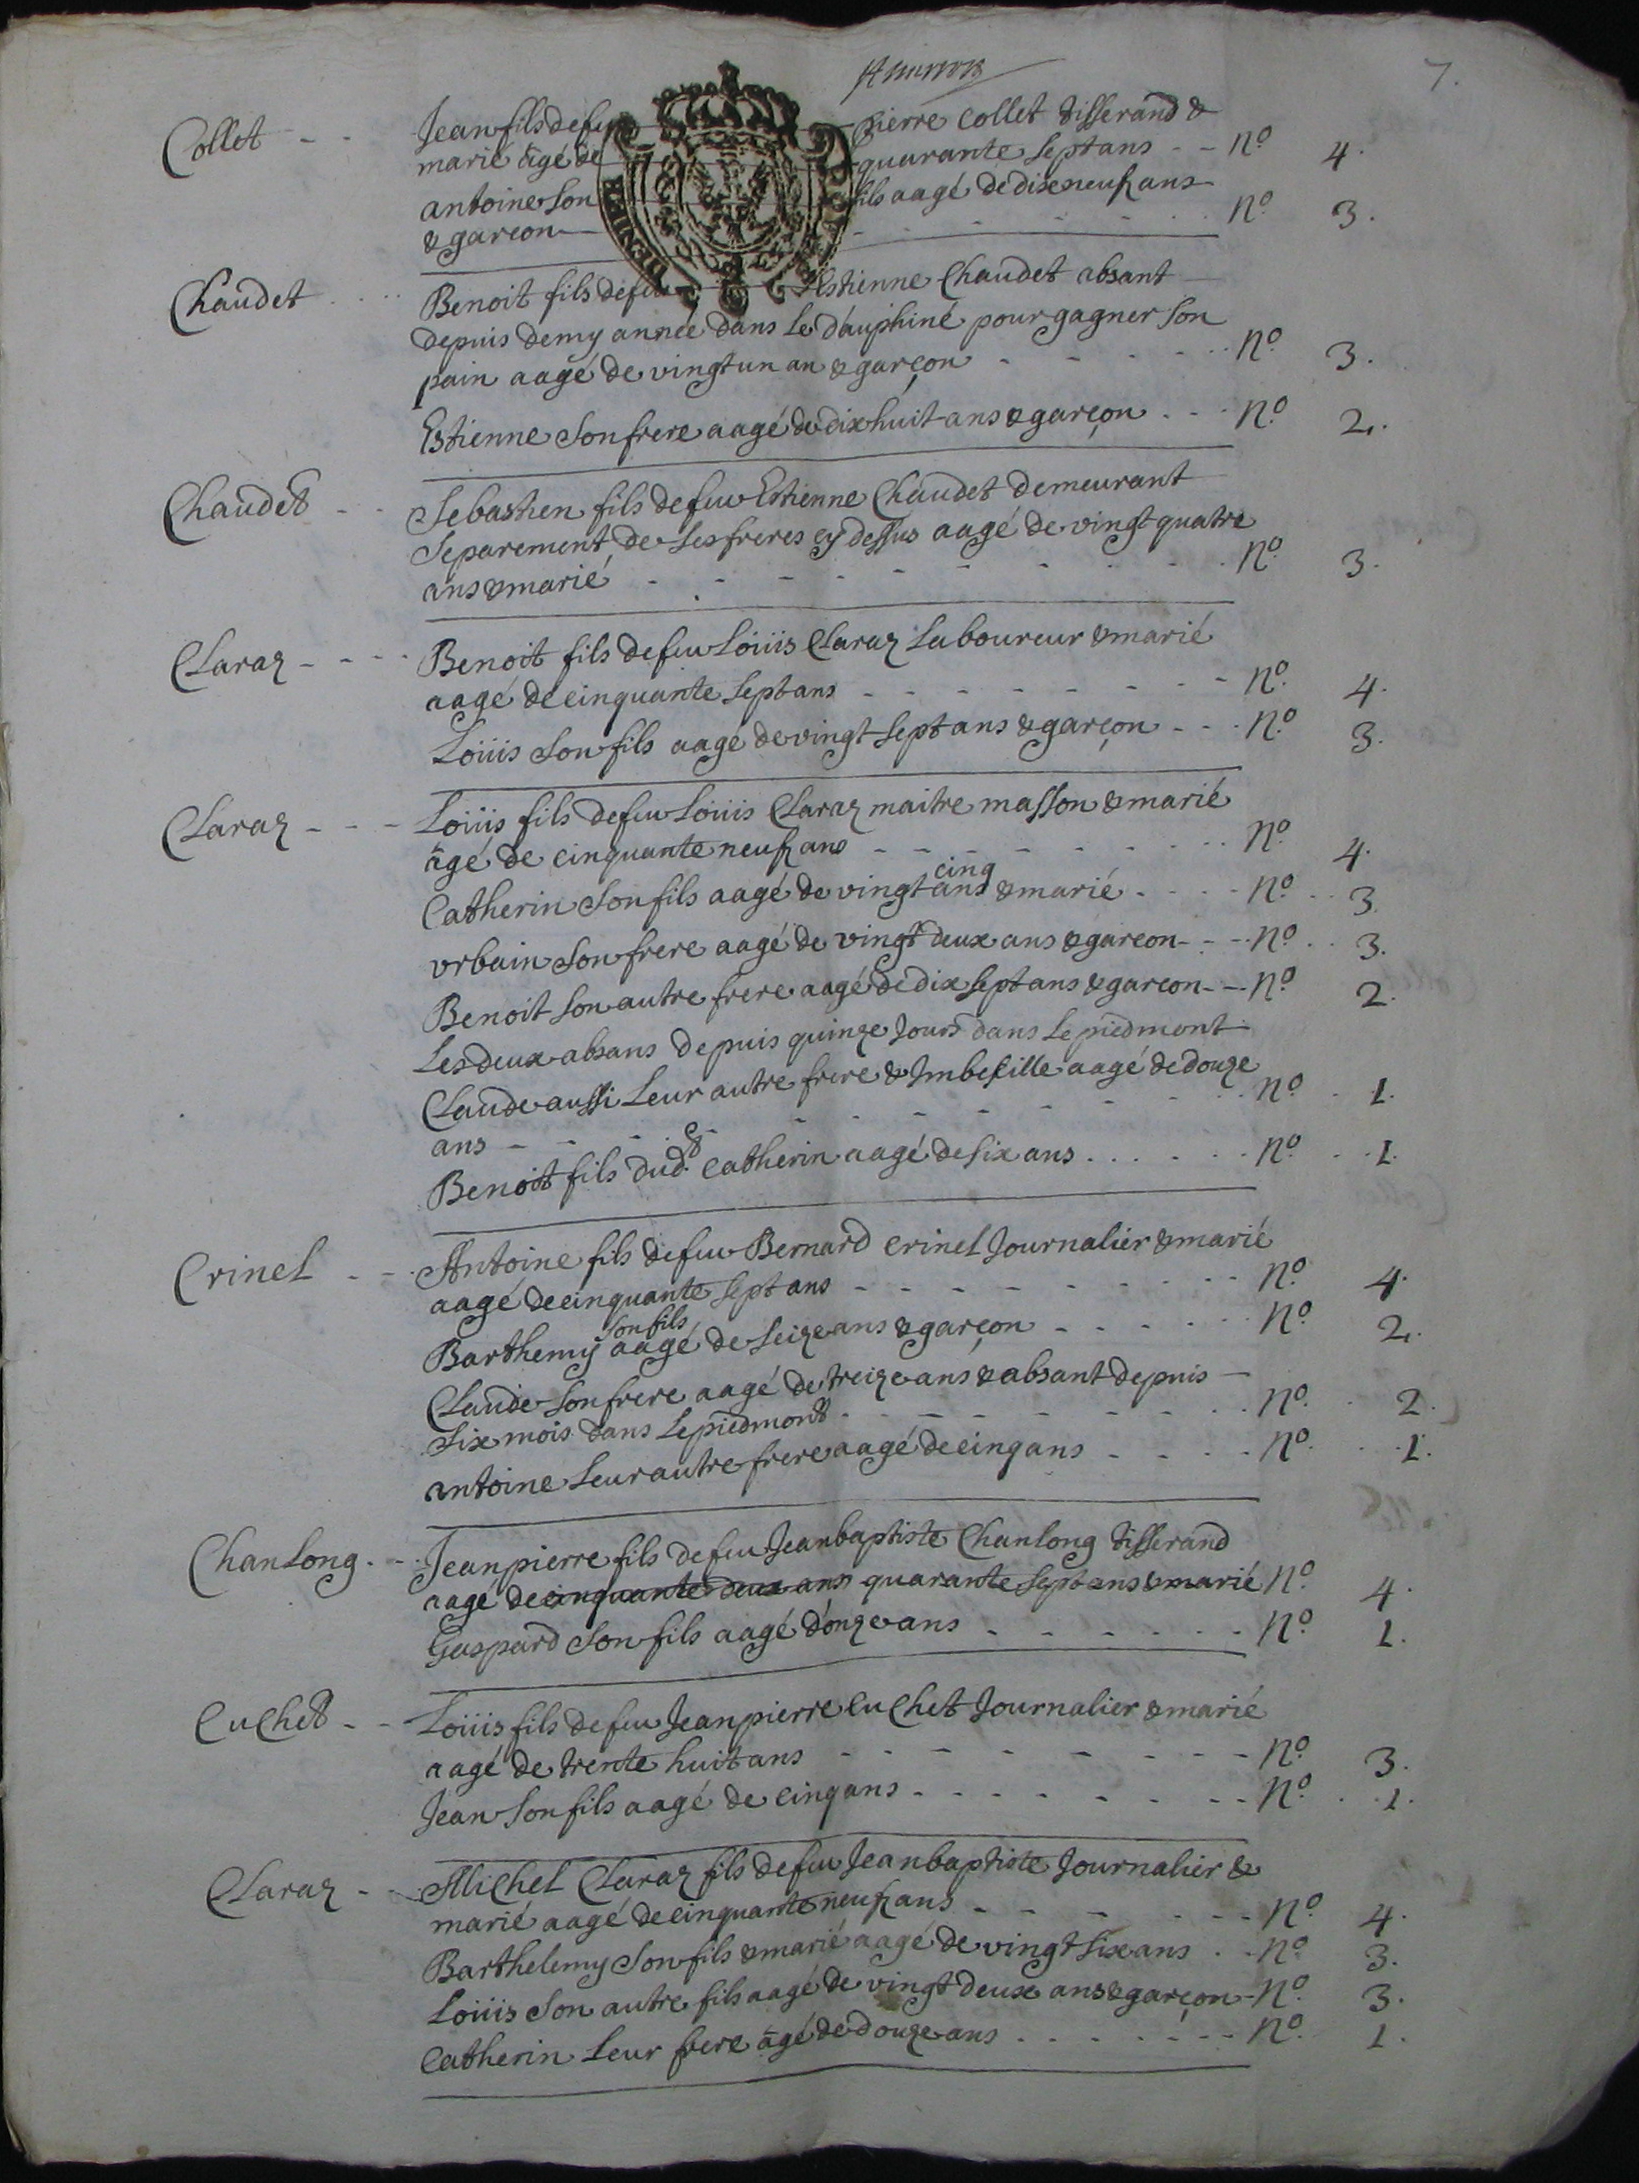 7.
Collet - - Jean fils de feu Pierre Collet tisserand &
marié âgé de quarante sept ans - - N.º 4.
antoine son fils aagé de dix neuf ans
& garcon N.º 3.
Chaudet Benoit fils de feu Estienne Chaudet absant
depuis demy année dans le dauphiné pour gagner son
pain aagé de vingt un an & garçon N.º 3.
Estienne son frere aagé de dix huit ans & garçon N.º 2.
Chaudet Sebastien fils de feu Estienne Chaudet demeurant
Separement de ses freres cy dessus aagé de vingt quatre
ans & marié N.º 3.
Claraz Benoit fils de feu Loüis Claraz Laboureur & marié
aagé de cinquante sept ans N.º 4.
Loüis son fils aagé de vingt sept ans & garçon N.º 3.
Claraz Loüis fils de feu Loüis Claraz maitre masson & marié
âgé de cinquante neuf ans N.º 4.
Catherin son fils aagé de vingt cinq ans & marié N.º 3.
Vrbain son frere aagé de vingt deux ans & garcon N.º 3.
Benoit son autre frere aagé de dix sept ans & garcon N.º 2.
Les deux absans depuis quinze Jours dans le piedmont
Claude aussi Leur autre frere & Imbecille aagé de douze
ans N.º 1.
Benoit fils dud.t Catherin aagé de six ans N.º 1.
Crinel Antoine fils de feu Bernard Crinel Journalier & marié
aagé de cinquante sept ans N.º 4.
Barthemy son fils aagé de seize ans & garçon N.º 2.
Claude son frere aagé de treize ans & absant depuis
six mois dans Le piedmont N.º 2.
antoine Leur autre frere aagé de cinq ans N.º 1.
Chanlong Jean pierre fils de feu Jean baptiste Chanlong tisserand
aagé de cinquante deux ans quarante sept ans & marié N.º 4.
Gaspard son fils aagé d'onze ans N.º 1.
Cuchet Loüis fils de feu Jean pierre Cuchet Journalier & marié
aagé de trente huit ans N.º 3.
Jean son fils aagé de cinq ans N.º 1.
Claraz Michel Claraz fils de feu Jean baptiste Journalier &
marié aagé de cinquante neuf ans N.º 4.
Barthelemy son fils & marié aagé de vingt six ans N.º 3.
Loüis son autre fils aagé de vingt deux ans & garçon N.º 3.
Catherin Leur frere âgé de douze ans N.º 1.